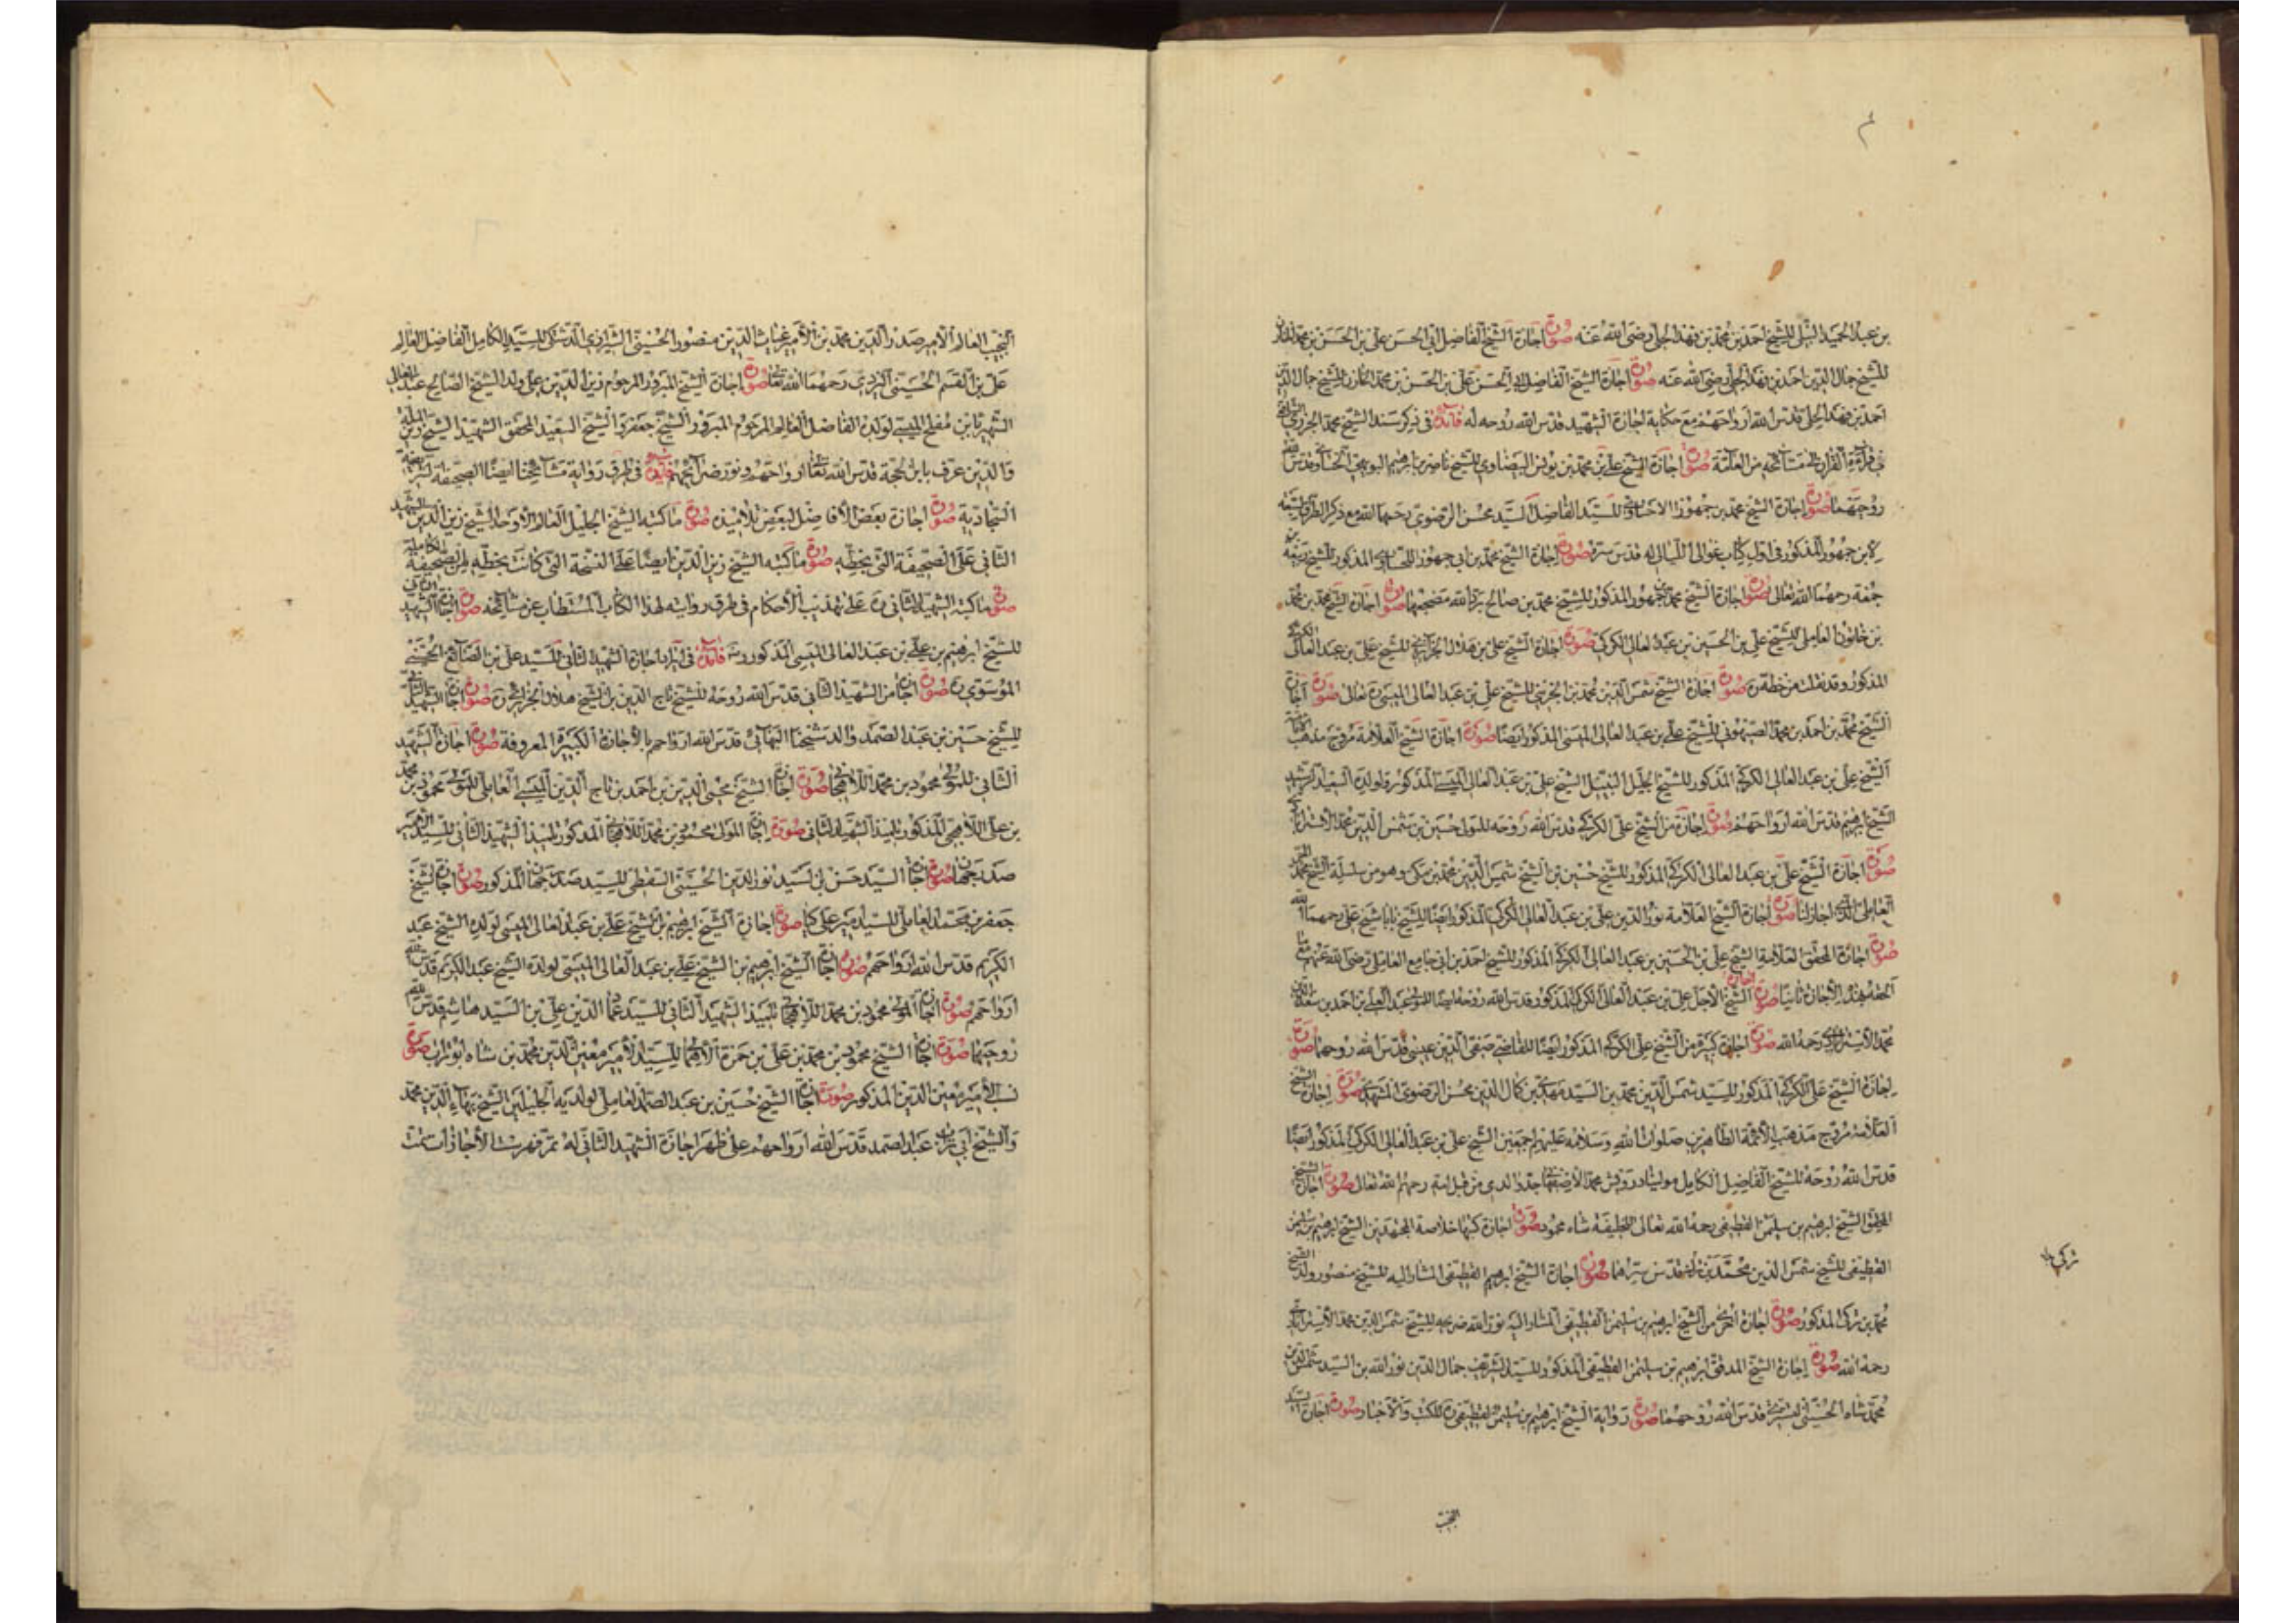 بن عبد الحميد النيلى للشيخ احمد بن محمد بن فهد الحلى رضى الله عنه صورة اجازة الشيخ الفاضل ابى الحسن على بن الحسن بن محمد الخازن
للشيخ جمال الدين احمد بن فهد الحلى رضى الله عنه صورة اجازة الشيخ الفاضل ابى الحسن على بن الحسن بن محمد الخازن للشيخ جمال الدين
احمد بن فهد الحلى قدس الله ارواحهم مع حكاية اجازة الشهيد قدس الله روحه له فائدة فى ذكر سند الشيخ محمد الجزرى
فى قراءة القرآن مشائخه من العامة صورة اجازة الشيخ على بن محمد بن يونس البياضاوى للشيخ ناصر بن ابرهيم البويهى الحساوى قدس الله
روحهما صورة اجازة الشيخ محمد بن جمهور الاحساوى للسيد الفاضل السيد محسن الرضوى رحمهما الله مع ذكر الطرق السبعة
لابن جمهور المذكور فى اول كتاب غوالى اللئالى له قدس سره صورة اجازة الشيخ محمد بن ابى جمهور اللحساوى المذكور للشيخ ربيعة بن
جمعة رحمهما الله تعالى صورة اجازة الشيخ محمد بن جمهور المذكور للشيخ محمد بن صالح برد الله مضجعهما صورة اجازة الشيخ محمد بن محمد
بن خاتون العاملى للشيخ على بن الحسين بن عبد العالى الكركى صورة اجازة الشيخ على بن هلال الجزائرى للشيخ على بن عبد العالى الكركى
المذكور وقد نقلت من خطه ره صورة اجازة الشيخ شمس الدين محمد بن الجزينى للشيخ على بن عبد العالى الميسى ره تعالى صورة اجازة
الشيخ محمد بن احمد بن محمد الصهيونى للشيخ على بن عبد العالى الميسى المذكور ايضا صورة اجازة الشيخ العلامة مروج مذهب
الشيخ على بن عبد العالى الكركى المذكور للشيخ الجليل النبيل الشيخ على بن عبد العالى الميسى المذكور ولولده السعيد الرشيد
الشيخ ابرهيم قدس الله ارواحهم صورة اجازة من الشيخ على الكركى قدس الله روحه للمولى حسين بن شمس الدين محمد الاسترابادى
صورة اجازة الشيخ على بن عبد العالى الكركى المذكور للشيخ حسين بن الشيخ شمس الدين محمد بن مكى وهو من سلسلة الشيخ محمد
العاملى الذى اجاز لنا صورة اجازة الشيخ العلامة نور الدين على بن عبد العالى الكركى المذكور ايضا للشيخ بابا شيخ على رحمهما الله
صورة اجازة المحقق العلامة الشيخ على بن الحسين بن عبد العالى الكركى المذكور للشيخ احمد بن ابى جامع العاملى رضى الله عنهم
الحقه بهذه الاجازة ثانيا صورة اجازة الشيخ الاجل على بن عبد العالى الكركى المذكور قدس الله روحه ايضا للمولى عبد العلى بن احمد بن سعد الدين
محمد الاسترابادى رحمه الله صورة اجازة كبيرة من الشيخ على الكركى المذكور ايضا للقاضى صفى الدين عيسى قدس الله روحهما صورة
اجازة الشيخ على الكركى المذكور للسيد شمس الدين محمد بن السيد مهدى بن كمال الدين محسن الرضوى المشهدى صورة اجازة الشيخ
العلامة مروج مذهب الائمة الطاهرين صلوات الله وسلامه عليهم اجمعين الشيخ على بن عبد العالى الكركى المذكور ايضا
قدس الله روحه للشيخ الفاضل الكامل مولينا درويش محمد الاصفهانى جد والدى من قبل امه رحمهم الله تعالى صورة اجازة الشيخ
المحقق الشيخ ابرهيم بن سليمن القطيفى رحمه الله تعالى للخليفة شاه محمود صورة اجازة كتبها خلاصة المجتهدين الشيخ ابرهيم بن سليمن
القطيفى للشيخ شمس الدين محمد بن تركى قدس سرهما صورة اجازة الشيخ ابرهيم القطيفى المشار اليه للشيخ منصور ولد الشيخ
محمد بن تركى المذكور صورة اجازة اخرى من الشيخ ابرهيم بن سليمن القطيفى المشار اليه نور الله ضريحه للشيخ شمس الدين محمد الاسترابادى
رحمه الله صورة اجازة الشيخ المدقق ابرهيم بن سليمن القطيفى المذكور للسيد الشريف جمال الدين نور الله بن السيد شمس الدين
محمد شاه الحسينى التسترى قدس الله روحهما صورة رواية الشيخ ابرهيم بن سليمن القطيفى ره للكتب والاخبار صورة اجازة السيد
تركى
النجيب
النجيب العالم الامير صدر الدين محمد بن الامير غياث الدين منصور الحسينى الشيرازى الدشتكى للسيد الكامل الفاضل العالم
على بن القسم الحسينى اليزدى رحمهما الله تعالى صورة اجازة الشيخ المبرور المرحوم زين الدين على ولد الشيخ الصالح عبد العالى
الشهير بابن مفلح الميسى لولده الفاضل العالم المرحوم المبرور الشيخ جعفر والشيخ السعيد المحقق الشهيد الشيخ زين الملة
والدين عرف بابن الحجة قدس الله تعالى ارواحهم ونور ضرائحهم فائدة فى طرق رواية مشايخنا ايضا الصحيفة الشريفة
السجادية صورة اجازة بعض الأفاضل لبعض تلاميذه صورة ما كتبه الشيخ الجليل العالم الاوحد الشيخ زين الدين الشهيد
الثانى على الصحيفة التى بخطه صورة ما كتبه الشيخ زين الدين ايضا على النسخة التى كانت بخطه من الصحيفة الكاملة
صورة ما كتبه الشهيد الثانى ره على تهذيب الأحكام فى طرق روايته لهذا الكتاب المستطاب عن مشائخه صورة اجازة الشهيد الثانى
للشيخ ابرهيم بن على بن عبد العالى الميسى المذكور ره فائدة فى ايراد اجازة الشهيد الثانى للسيد على بن الصائغ الحسينى
الموسوى ره صورة اجازة من الشهيد الثانى قدس الله روحه للشيخ تاج الدين بن الشيخ هلال الجزائرى ره صورة اجازة الشهيد الثانى
للشيخ حسين بن عبد الصمد والد شيخنا البهائى قدس الله ارواحهم بالاجازة الكبيرة المعروفة صورة اجازة الشهيد
الثانى للمولى محمود بن محمد اللاهيجانى صورة اجازة الشيخ محيى الدين بن احمد بن تاج الدين الميسى العاملى للمولى محمود بن محمد
بن على اللاهيجى المذكور تلميذ الشهيد الثانى صورة اجازة المولى محمود بن محمد اللاهيجانى المذكور تلميذ الشهيد الثانى للسيد الامير
صدر جهان صورة اجازة السيد حسن بن السيد نور الدين الحسينى السقطى للسيد صدر جهان المذكور صورة اجازة الشيخ
جعفر بن محمد العاملى للسيد امير على كيا صورة اجازة الشيخ ابرهيم بن الشيخ على بن عبد العالى الميسى لولده الشيخ عبد
الكريم قدس الله ارواحهم صورة اجازة الشيخ ابرهيم بن الشيخ على بن عبد العالى الميسى لولده الشيخ عبد الكريم قدس الله
ارواحهم صورة اجازة المولى محمود بن محمد اللاهيجانى تلميذ الشهيد الثانى للسيد عماد الدين على بن السيد هاشم قدس الله
روحهما صورة اجازة الشيخ محمود بن محمد بن على بن حمزة اللاهيجانى للسيد الأمير معين الدين محمد بن شاه ابو تراب صورة
نسب الأمير معين الدين المذكور صورة اجازة الشيخ حسين بن عبد الصمد العاملى لولديه الجليلين الشيخ بهاء الدين محمد
والشيخ ابى تراب عبد الصمد قدس الله ارواحهم على ظهر اجازة الشهيد الثانى له تم فهرست الاجازات تمت